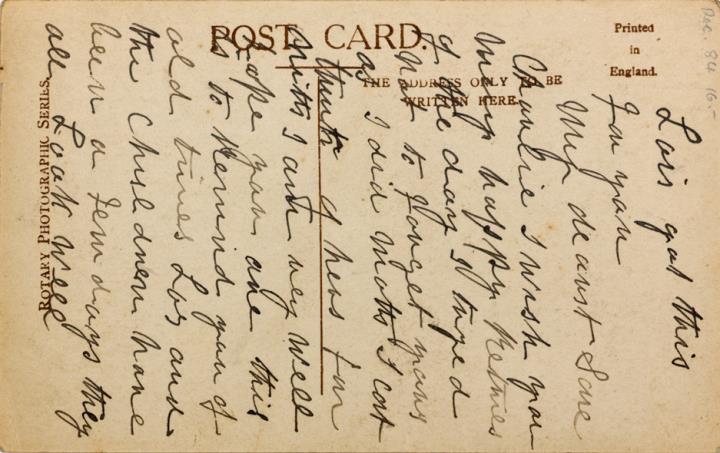 POST CARD.
THE ADDRESS ONLY TO BE
WRITTEN HERE
Printed
in
England.
ROTARY PHOTOGRAPHIC SERIES.
Dec. 84 16.-
Lois got this
for you
My dearst Son
Charlie I wish you
Meny happy Returns
of the day I tryed
not to forget yours
as I did Motts I cot
think of hers for
Mits I am very well
Hope you are this
is to Remind you of
old times Los and
the Children have
been a few days they
all Look Well